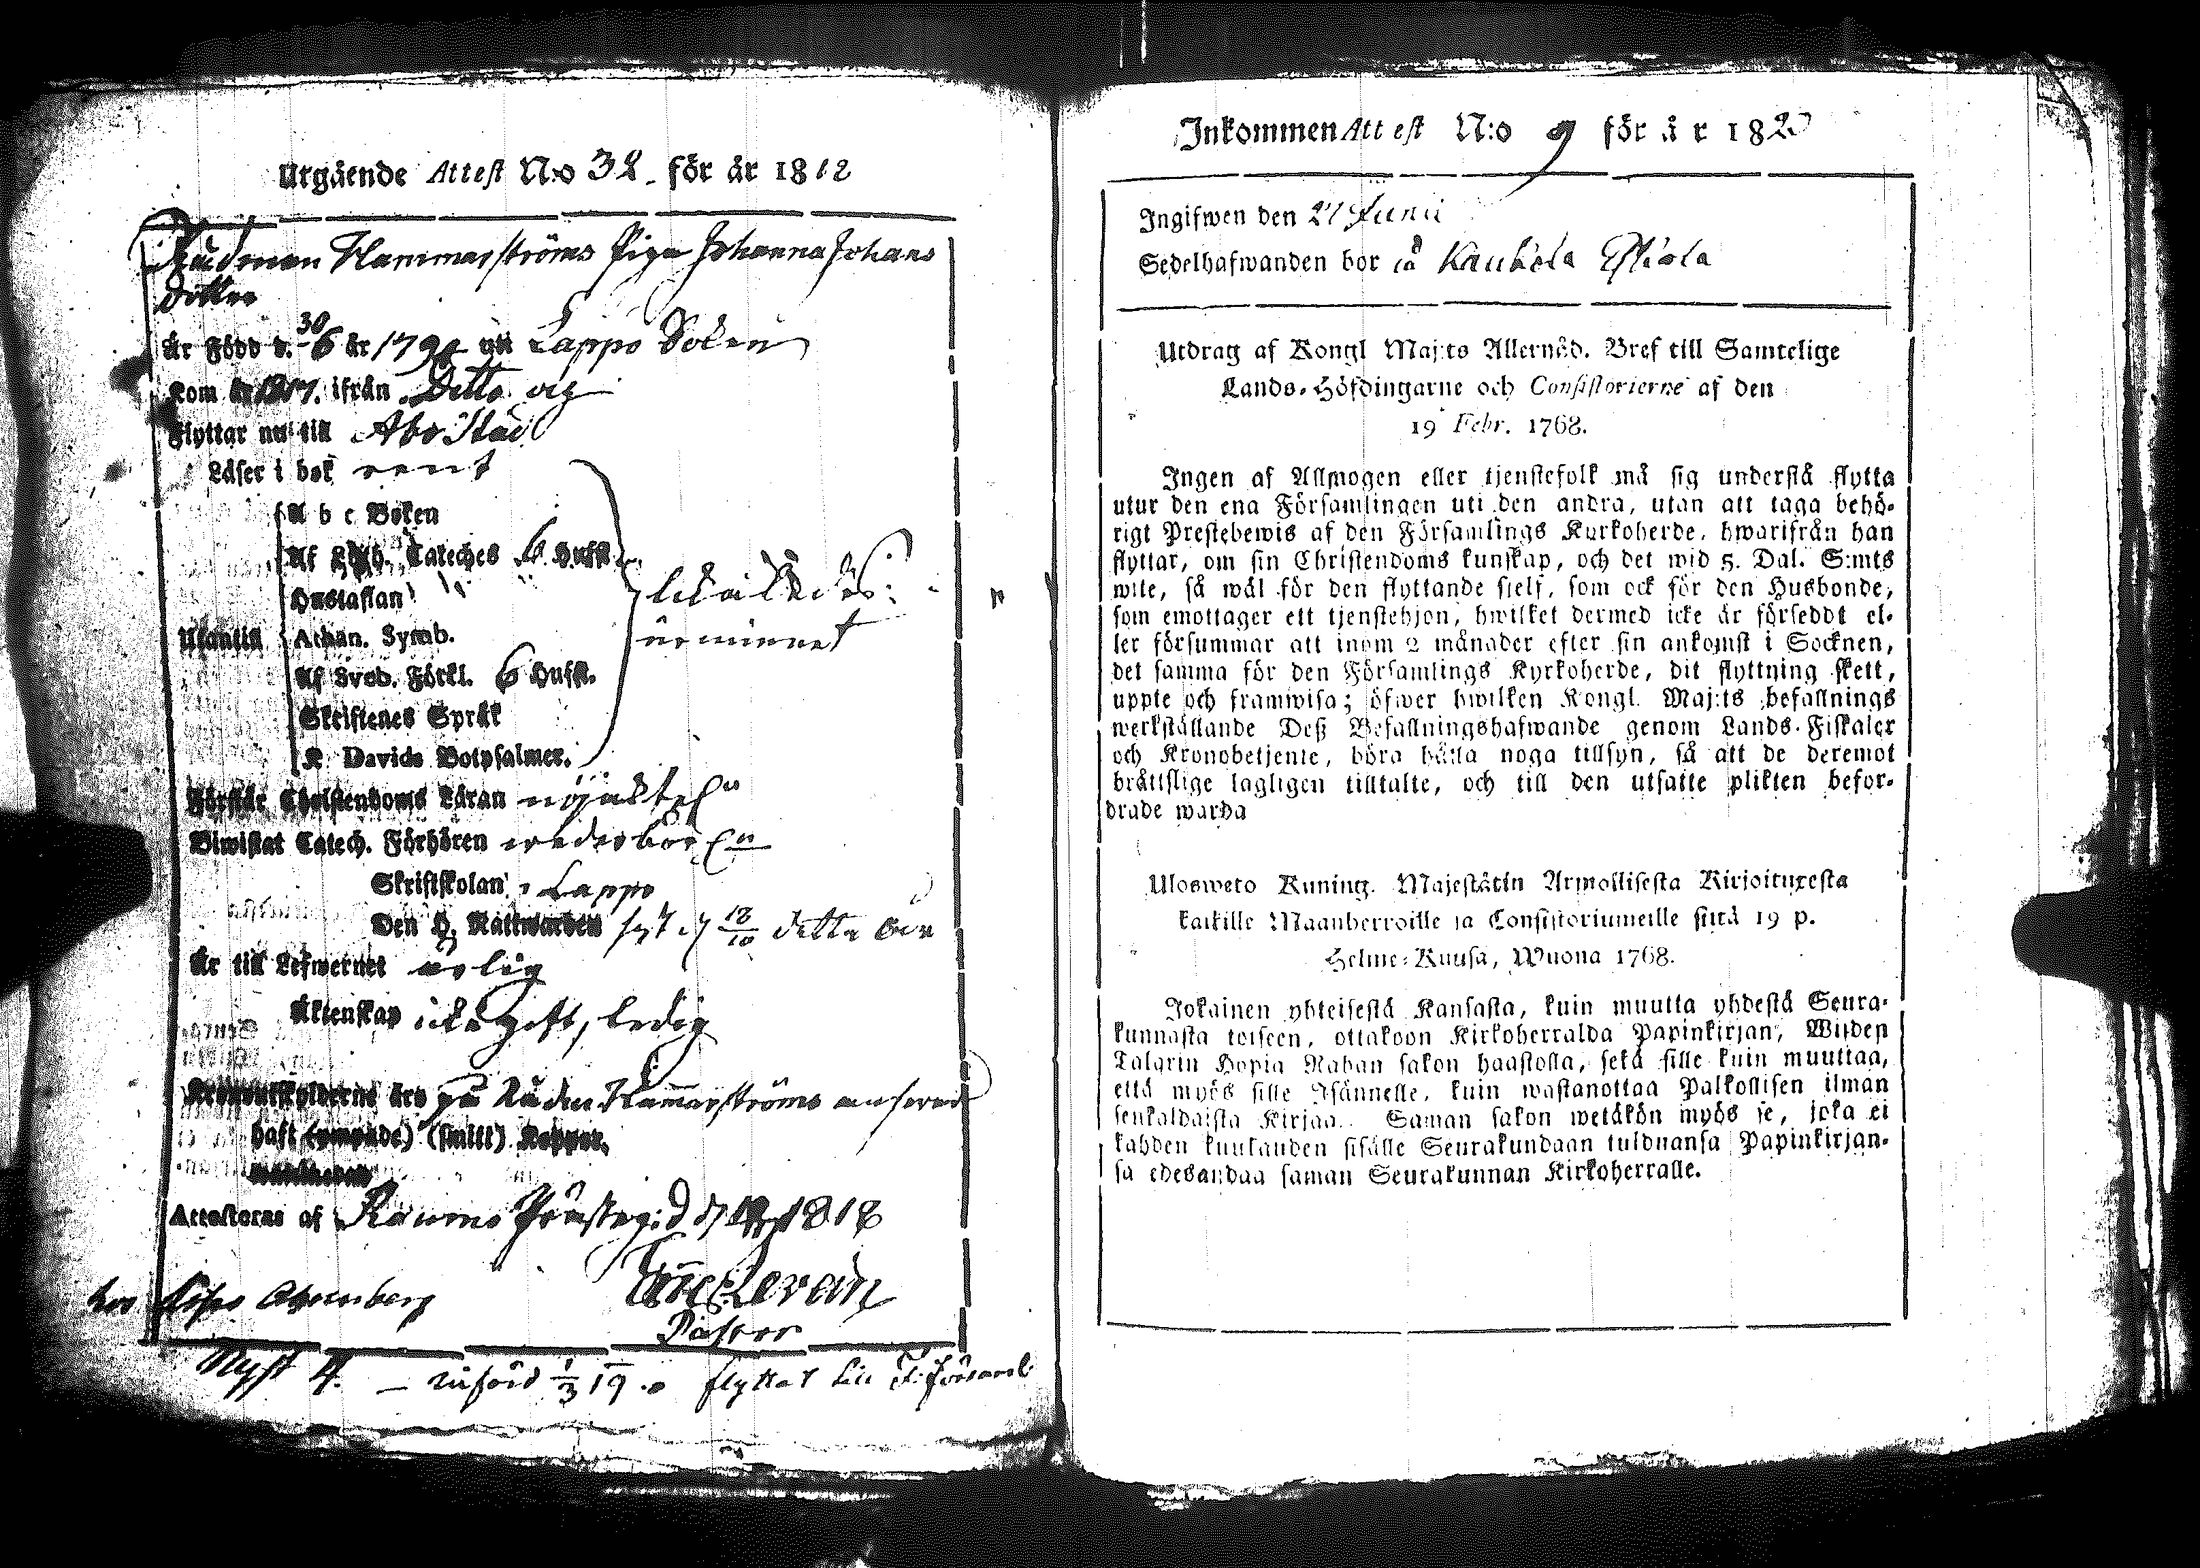 Utgående Attest N:o 38 för år 1818
Rådman Hammarströms Piga Johanna Johans
dotter
Är Född d. 30/6 år 179 uti Lappo Sokn
Kom år 1817. ifrån Detto
Flyttar nu till Åbo Stad
Läser i bok rent
A b c Boken
Af Luth. Cateches 6 Hufst.
Hustaflan
Utantill
Athan. Symb.
Af Sved. Förkl. 6 Hufst.
Skriftenes Språk
K Davids Botpsalmer.
ur minnet
Förstår Christendoms Läran nöjaktel:n
Biwistat Catech. Förhören wederbörl:n
Skriftskolan i Lappo
Den H. Nattwarden sist d 18/10 detta år
Är till Lefwernet ärlig
Äktenskap icke gift, ledig
Kronoutskylderne äro på Rådm Hammarströms answar
haft (ympade) (smitt) Koppor.
Attesteras af Raumo Prästeg:d d 1818
Pastor
Nyst 4. — införd 1/3 19. flyttat till F. församl
Inkommen Attest N:o 9 för år 182
Ingifwen den 27 Junii
Sedelhafwanden bor
Utdrag af Kongl Maj:ts Allernåd. Bref till Samtelige
Lands-Höfdingarne och Consistorierne af den
19 Febr. 1768.
Ingen af Allmogen eller tjenstefolk må sig understå flytta
utur den ena Församlingen uti den andra, utan att taga behö-
rigt Prestebewis af den Församlings Kyrkoherde, hwarifrån han
flyttar, om sin Christendoms kunskap, och det wid 5. Dal. S:mts
wite, så wäl för den flyttande sjelf, som ock för den Husbonde,
som emottager ett tjenstehjon, hwilket dermed icke är försedt el-
ler försummar att inom 2 månader efter sin ankomst i Socknen,
det samma för den Församlings Kyrkoherde, dit flyttning skett,
uppte och framwisa; öfwer hwilken Kongl. Maj:ts befallnings
werkställande Deß Befallningshafwande genom Lands-Fiskaler
och Kronobetjente, böra hålla noga tillsyn, så att de deremot
bråttslige lagligen tilltalte, och till den utsatte plikten befor-
drade warda
Ulosweto Kuning. Majestätin Armollisesta Kirjoituxesta
kaikille Maanherroille ja Consistoriumeille siitä 19 p.
Helme-Kuusa, Wuona 1768.
Jokainen yhteisestä Kansasta, kuin muutta yhdestä Seura-
kunnasta toiseen, ottakoon Kirkoherralda Papinkirjan, Wijden
Talarin Hopia Rahan sakon haastolla, sekä sille kuin muuttaa,
että myös sille Isännelle, kuin wastanottaa Palkollisen ilman
senkaldaista Kirjaa. Saman sakon wetäkön myös se, joka ei
kahden kuukauden sisälle Seurakundaan tulduansa Papinkirjan-
sa edesandaa saman Seurakunnan Kirkoherralle.